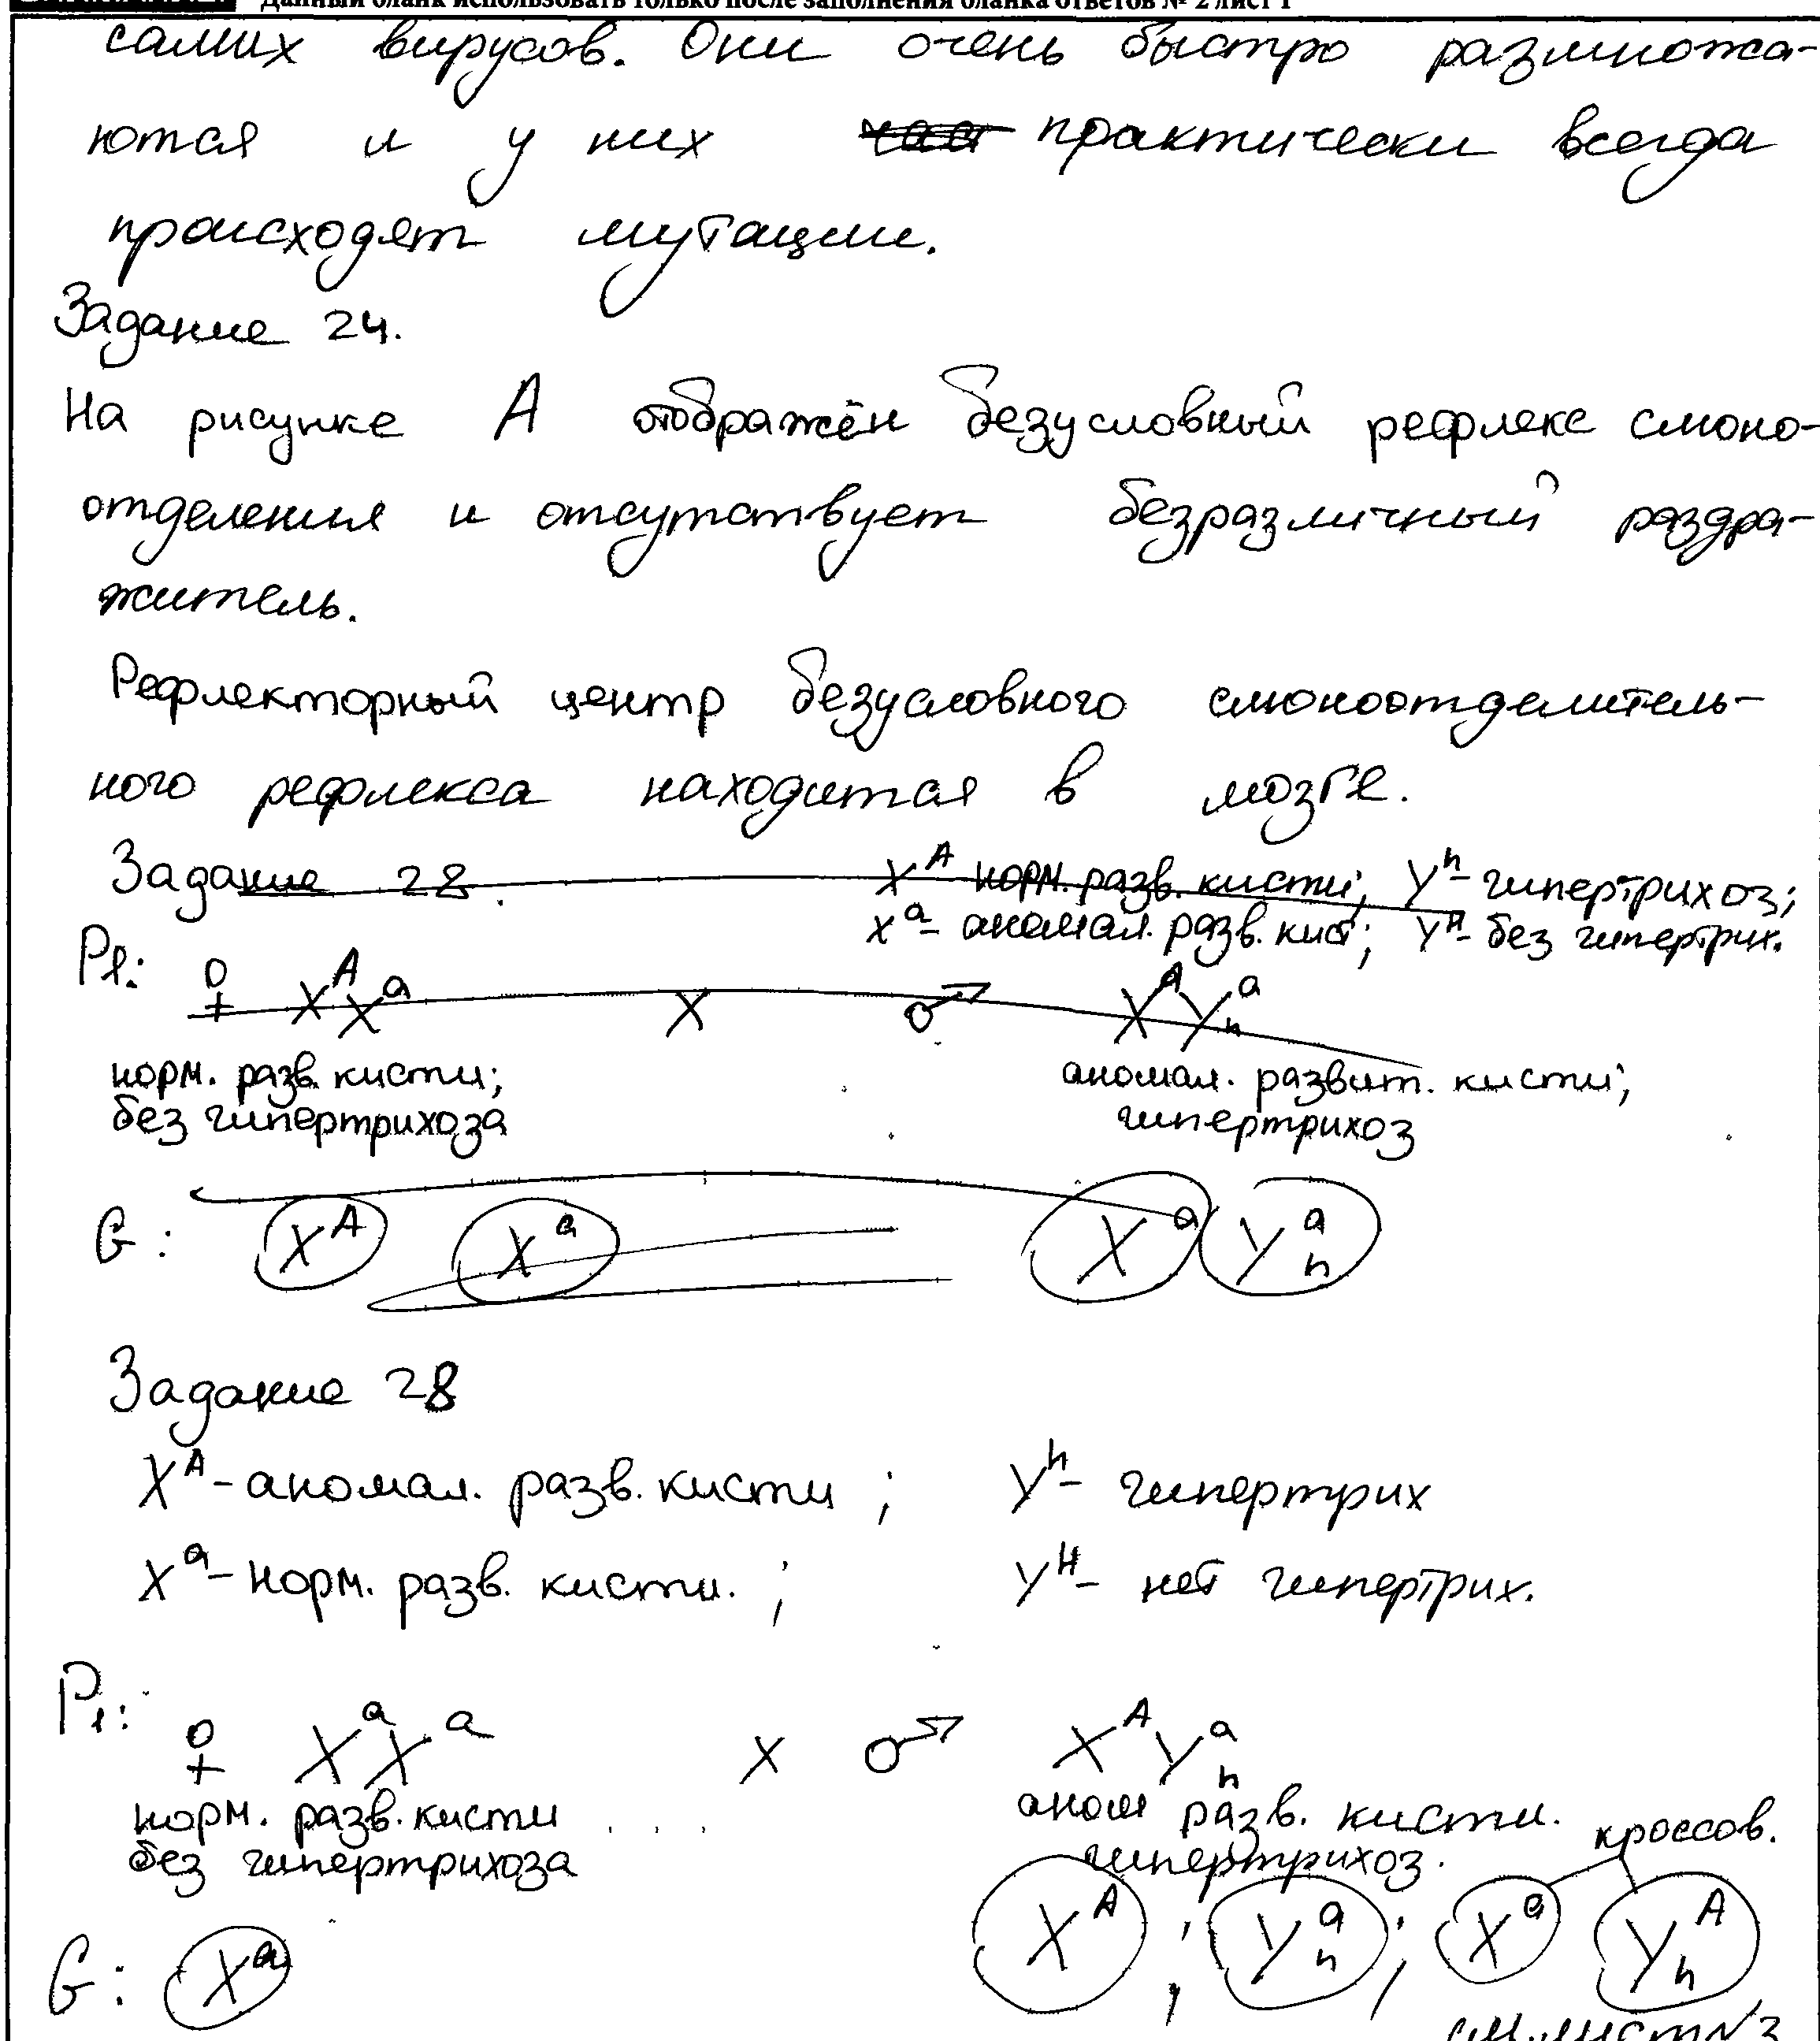 Данный бланк использовать только после заполнения бланка ответов № 2 лист 1
самих вирусов. Они очень быстро размножа-
ются и у них практически всегда
происходят мутации.
Задание 24.
На рисунке А отображён безусловный рефлекс слюно-
отделения и отсутствует безразличный раздра-
житель.
Рефлекторный центр безусловного слюноотделитель-
ного рефлекса находится в мозге.
Задание 28.
X^A норм. разв. кисти; Y^h - гипертрихоз;
X^a - аномал. разв. кист; Y^H - без гипертрих.
P1: ♀ X^A X^a x ♂ X^A Y^a_h
норм. разв. кисти; аномал. развит. кисти;
без гипертрихоза гипертрихоз
G: X^A X^a X^a Y^a_h
Задание 28
X^A - аномал. разв. кисти; Y^h - гипертрих
X^a - норм. разв. кисти.; Y^H - нет гипертрих.
P1: ♀ X^a X^a x ♂ X^A Y^a_h
норм. разв. кисти аном разв. кисти. кроссов.
без гипертрихоза гипертрихоз.
G: X^a X^A; Y^a_h; X^a Y^A_h
см. лист №3